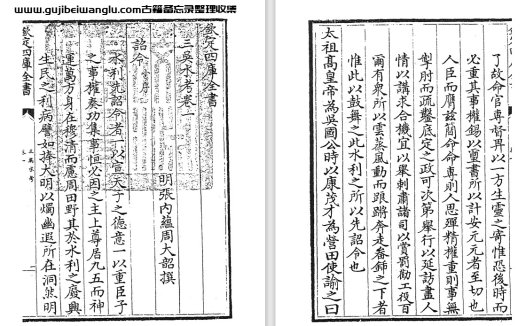 www.gujibeiwanglu.com古籍备忘录整理收集
欽定四庫全書
三吳水考卷一
明 張內蘊 周大韶 撰
詔令
水利先詔令者一以宣天子之德意一以重臣子
之事權奏功集事恒必因之主上尊居九五而神
運萬方身在穆清而慮周田野其於水利之廢興
生民之利病譬如捧大明以燭幽遐所在洞然明
欽定四庫全書
三吳水考
了故命官專督畀以一方生靈之寄惟恐後時而
必重其事權錫以璽書所以計安元元者至切也
人臣而膺茲簡命命專則人思殫精權重則事無
掣肘而疏鑿底定之政可次第舉行以延訪盡人
情以講求合機宜以果刺肅諸司以賞罰勸工役百
爾有衆所以雲蒸風動而踉蹡奔走畚鍤之下者
惟此以鼓舞之此水利之所以先詔令也
太祖高皇帝為吳國公時以康茂才為營田使諭之曰